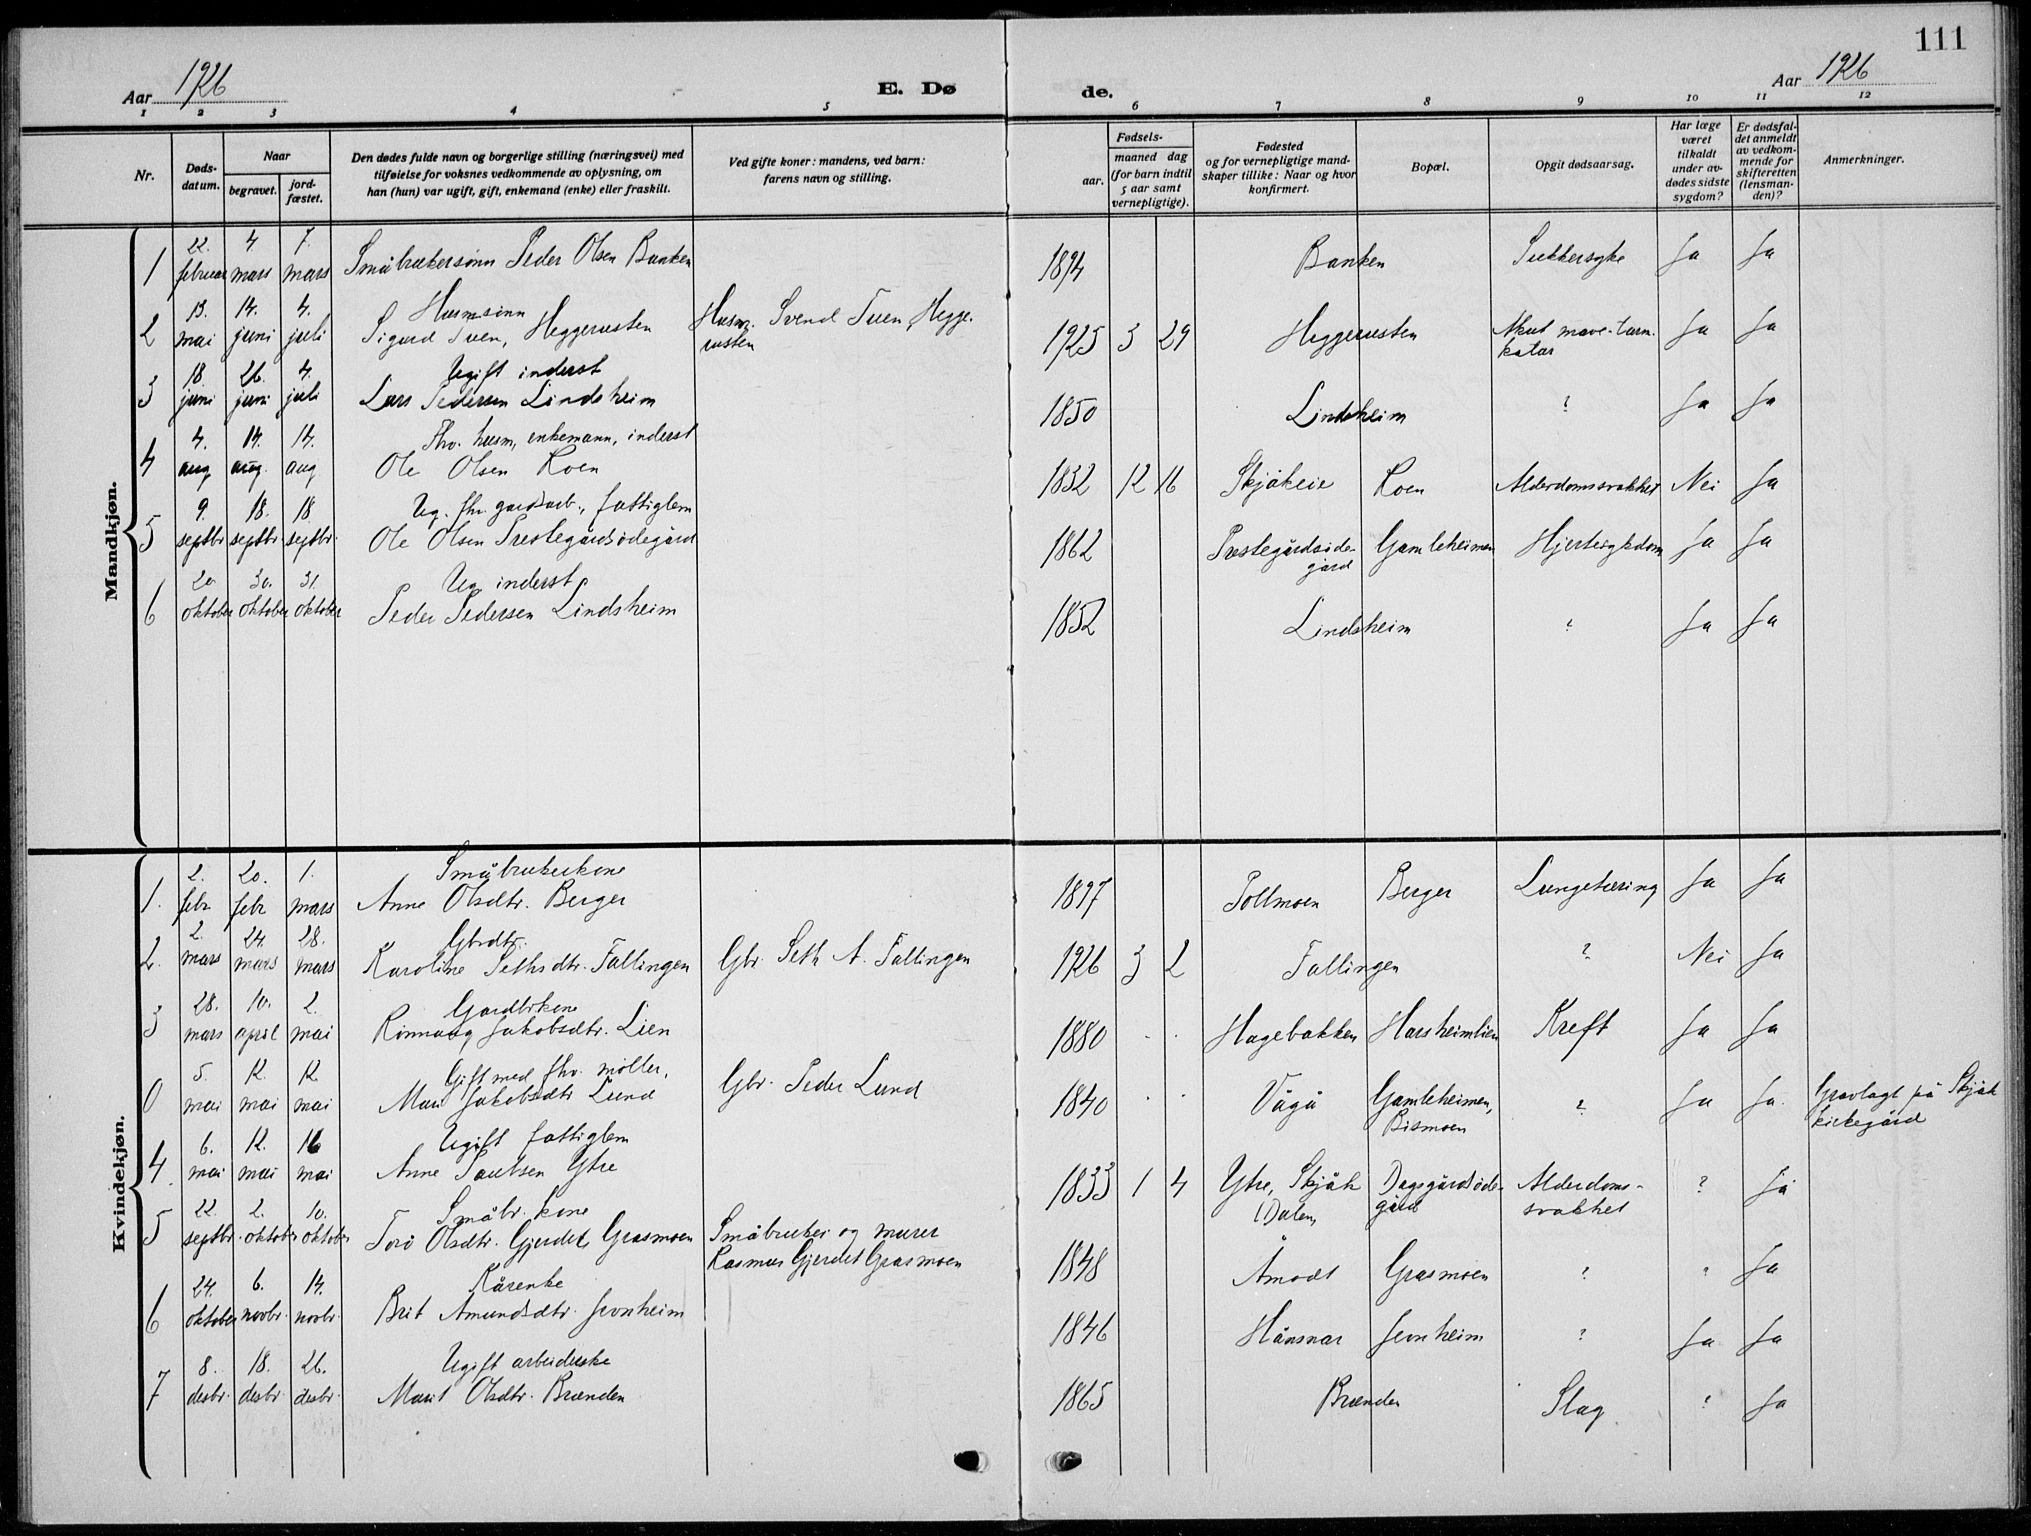 111
Aar 1926
E. Dø
de.
Aar 1926
1 2 3 4 5 6 7 8 9 10 11 12
Nr.
Døds-
datum.
Naar
begravet.
jord-
fæstet.
Den dødes fulde navn og borgerlige stilling (næringsvei) med
tilføielse for voksnes vedkommende av oplysning, om
han (hun) var ugift, gift, enkemand (enke) eller fraskilt.
Ved gifte koner: mandens, ved barn:
farens navn og stilling.
Fødsels-
aar.
maaned dag
(for barn indtil
5 aar samt
vernepligtige).
Fødested
og for vernepligtige mand-
skaper tillike: Naar og hvor
konfirmert.
Bopæl.
Opgit dødsaarsag.
Har læge
været
tilkaldt
under av-
dødes sidste
sygdom?
Er dødsfal-
det anmeldt
av vedkom-
mende for
skifteretten
(lensman-
den)?
Anmerkninger.
Mandkjøn.
22. 4 7.
1 februar mars mars Småbrukersønn Peder Olsen Banken 1894 Banken Sukkersyke Ja Ja
13. 14. 4. Husm.sønn
2 mai juni juli Sigurd Tuen, Heggerusten Husm. Svend Tuen, Hegge-
rusten 1925 3 29 Heggerusten Akut mave-tarm-
katar Ja Ja
18. 26. 4. Ugift inderst
3 juni juni juli Lars Pedersen Lindsheim 1850 Lindsheim ? Ja Ja
4. 14. 14. Fhv. husm, enkemann, inderst
4 aug aug. aug Ole Olsen Roen 1832 12 16 Skjåkeie Roen Alderdomssvakhet Nei Ja
9. 18. 18. Ug. fhv. gardsarb., fattiglem
5 septbr septbr. septbr. Ole Olsen Prestegårdsødegård 1862 Prestegårdsøde-
gård Gamleheimen Hjertesykdom Ja Ja
20 30. 31. Ug inderst
6 oktober oktober oktober Peder Pedersen Lindsheim 1852 Lindsheim ? Ja Ja
Kvindekjøn.
2. 20. 1. Småbrukerkone
1. febr febr mars Anne Olsdtr. Berger 1897 Pollmoen Berger Lungetæring Ja Ja
2. 24. 28. Gbrdtr.
2. mars mars mars Karoline Sethsdtr. Fallingen Gbr. Seth A. Fallingen 1926 3 2 Fallingen ? Nei Ja
28. 10. 2. Gardbrkone
3 mars april mai Rønnaug Jakobsdtr. Lien 1880 Hagebakken Harsheimlien Kreft Ja Ja
5. 12. 12. Gift med fhv. møller,
0 mai mai mai Mari Jakobsdtr Lund Gbr. Peder Lund 1840 Vågå Gamleheimen,
Bismoen ? Ja Ja. Gravlagt på Skjåk
kirkegård
6. 12. 16 Ugift fattiglem
4. mai mai mai Anne Paulsen Ytre 1833 1 4 Ytre, Skjåk
(Dalen) Dagsgårdsøde-
gård Alderdoms-
svakhet ? Ja
22. 2. 10. Småbr. kone
5 septbr. oktober oktober Torø Olsdtr. Gjerdet, Grasmoen Småbruker og murer
Rasmus Gjerdet Grasmoen 1848 Åmodt Grasmoen ? ? Ja
24. 6. 14. Kårenke
6 oktober novbr. novbr. Brit Amundsdtr. Jevnheim 1846 Hånsnar Jevnheim ? Ja Ja
8. 18. 26. Ugift arbeiderske
7 desbr. desbr. desbr. Marit Olsdtr. Brænden 1865 Brænden Slag ? Ja